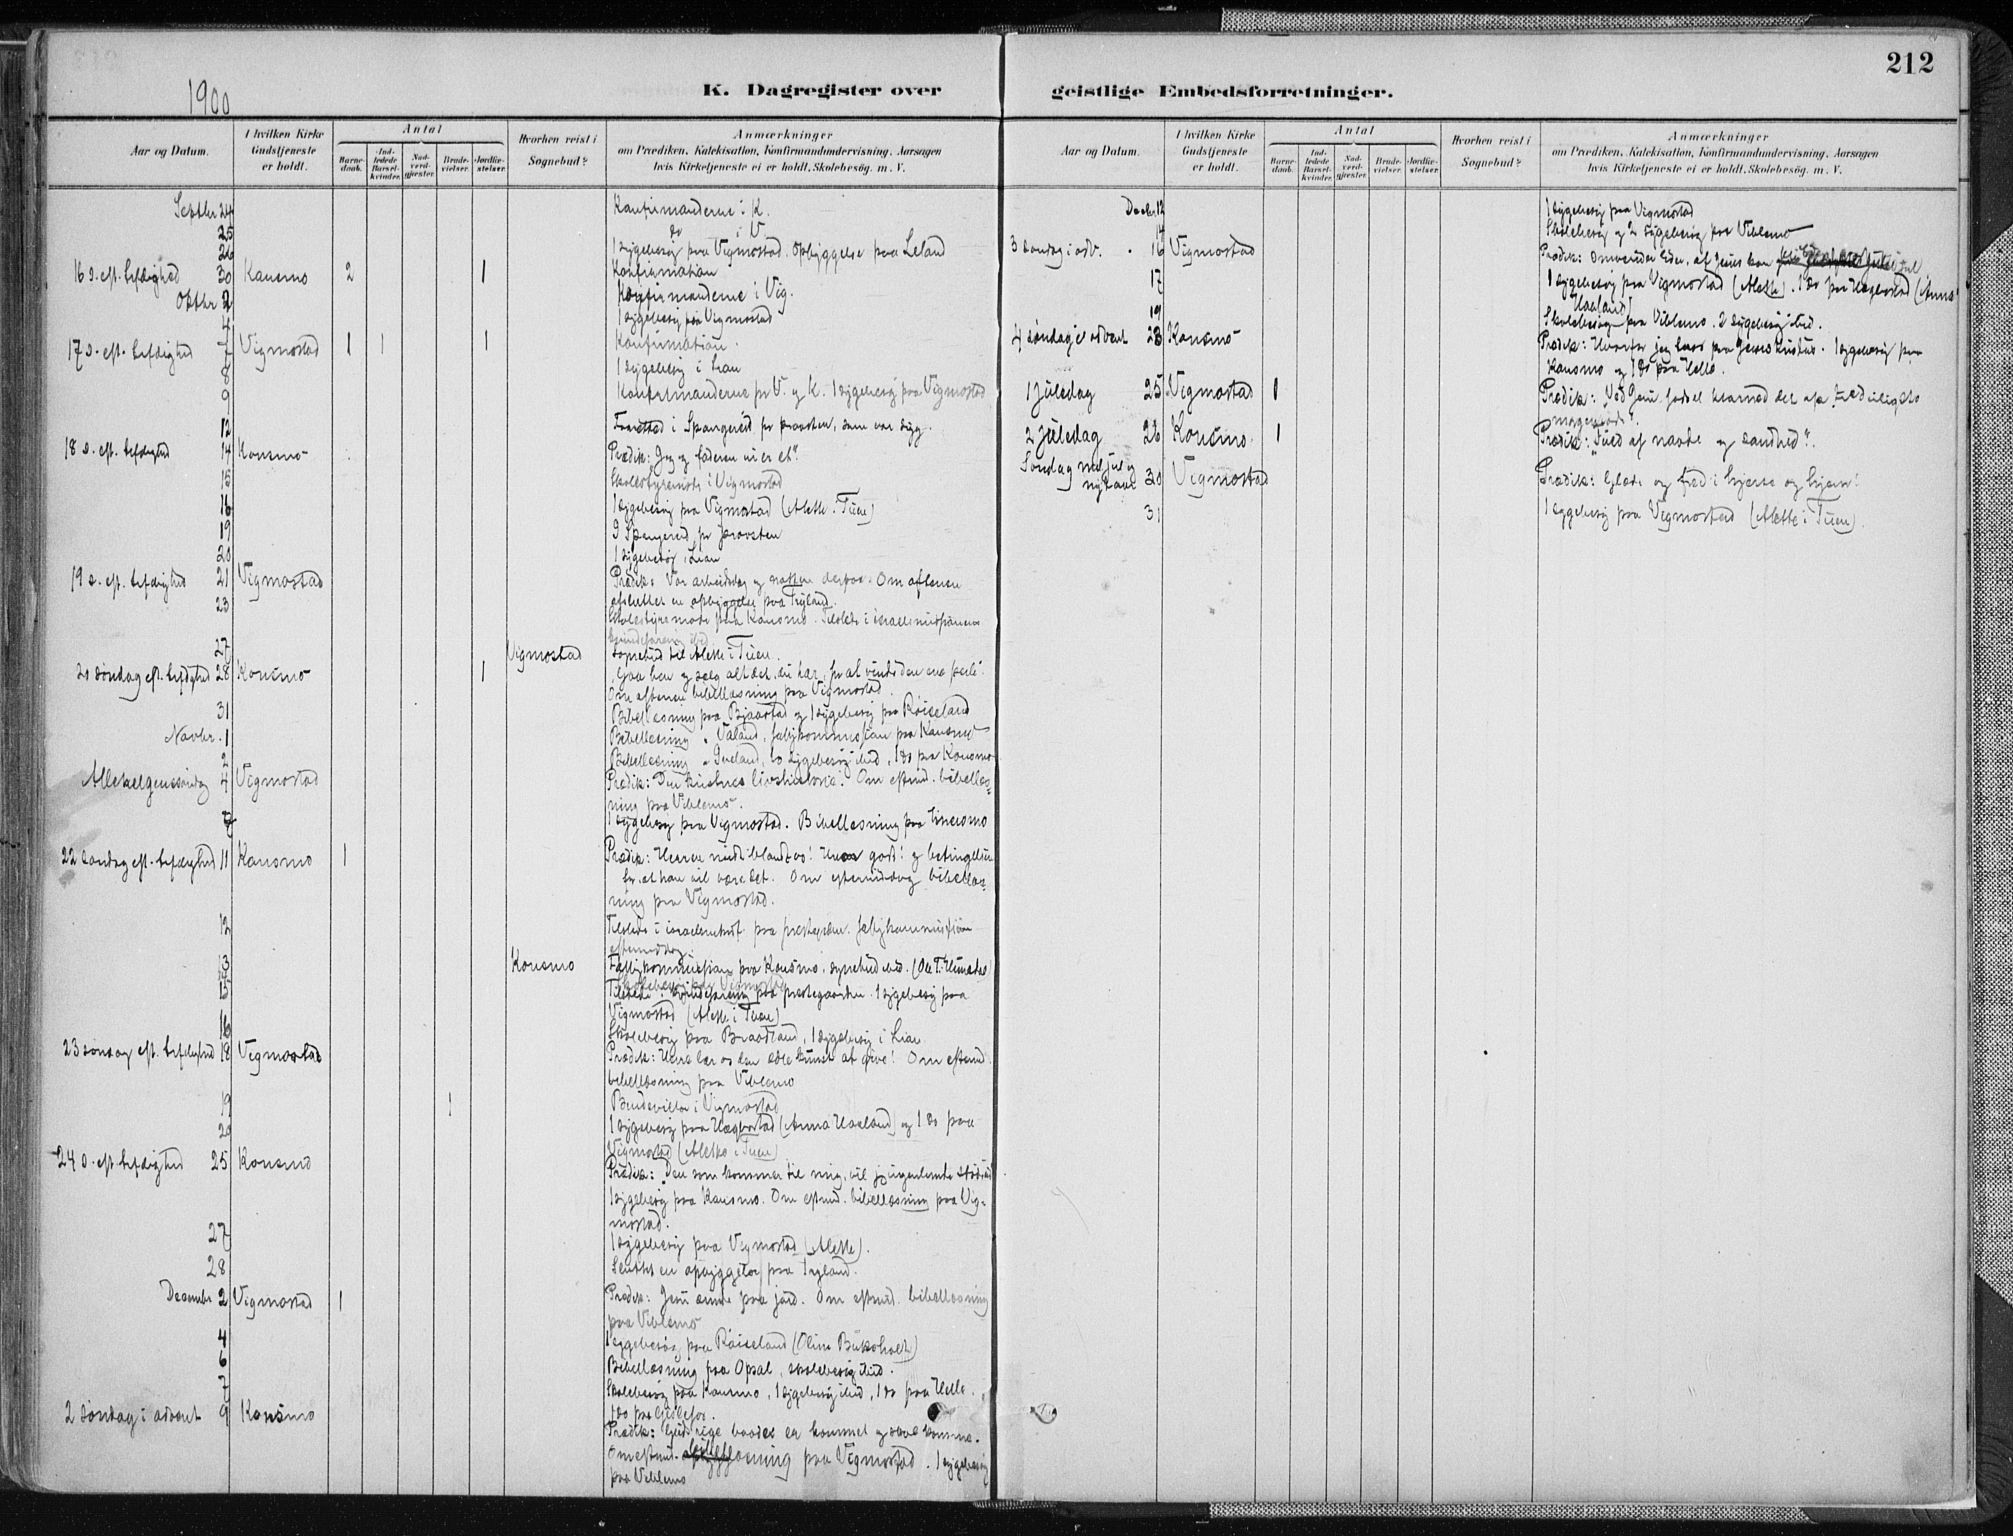 212
1900
K. Dagregister over
Aar og Datum.
I hvilken Kirke Gudstjeneste er holdt.
Antal
Barne-daab.
Ind-ledede Barsel-kvinder.
Nad-verd-gjester.
Brude-vielser.
Jordfæ-stelser.
Hvorhen reist i Sognebud?
Anmærkninger
om Prædiken, Katekisation, Konfirmandundervisning, Aarsagen
hvis Kirketjeneste ei er holdt, Skolebesøg. m. V.
Septbr 24 Konfirmanderne i K.
25 do i V
26 1 sygebesøg paa Vigmostad. Opbyggelse paa Leland
16 s. eft. trefoldighed 30 Konsmo 2 1 Konfirmation
Oktbr 2 Konfirmanderne i Vig.
4 1 sygebesøg paa Vigmostad
17 s. eft. trefoldighed 7 Vigmostad 1 1 1 Konfirmation.
8 1 sygebesøg i Lian
9 Konfirmanderne fr V. og K. 1 sygebesøg paa Vigmostad
12 i Spangereid for provsten, som var syg.
18 s. eft. trefoldighed 14 Konsmo Prædik: Jeg og faderen vi er et".
15 Skolestyremøte i Vigmostad
16 1 sygebesøg paa Vigmostad (Alette i Tuen)
19 I Spangereid for provsten
20 1 sygebesøg i Lian
19 s. eft. trefoldighed 21 Vigmostad Prædik: Vor arbeidsdag og natten derpaa. Om aftenen
afsluttet en opbyggelse paa Tryland.
23 Skolestyremøte paa Konsmo. Tilstede i israelsmissionens
kvindeforening ibid.
27 Vigmostad Sognebud til Alette i Tuen.
20 søndag eft. trefoldighed 28 Konsmo 1 Gaa hen og sælg alt det, du har, for at vinde den ene perle.
Om aftenen bibellæsning paa Vigmostad
31 Bibellæsning paa Bjaastad og 1 sygebesøg paa Røiseland
Novbr. 1 Bibellæsning " Valand, fattigkommission paa Konsmo
2 Bibellæsning " sygebesøg ibid, 1 do paa Konsmo
Allehelgenssøndag 4 Vigmostad Prædik: Den kristnes livshistorie. Om eftmd. bibellæs-
ning paa Viblemo.
1 sygebesøg paa Vigmostad. Bibellæsning paa
22 søndag eft. trefoldighed 11 Konsmo 1 Prædik: Herren midt iblandt os! Hvor godt! og betingelsen
for at han vil være det. Om eftermiddag bibellæs-
ning paa Vigmostad.
12 Tilstede i paa prestegaarden. Fattigkommission
eftermiddag.
13 Konsmo Fattigkommission paa Konsmo, sognebud ibid. (Ole T.
Skolebesøg paa Vigmostad
15 Tilstede i kvindeforening paa prestegaarden. 1 sygebesøg paa
Vigmostad (Alette i Tuen)
16 Skolebesøg paa Braadland, 1 sygebesøg i Lian
23 søndag eft. trefoldighed 18 Vigmostad Prædik: Herre lær os den ædle kunst at give! Om eftmd.
bibellæsning paa Viblemo
19 1 Brudevielse i Vigmostad
20 1 sygebesøg paa Hægbostad (Anna Haaland) og 1 do paa
Vigmostad (Alette i Tuen)
24 s. eft. trefoldighed 25 Konsmo Prædik: Den som kommer til mig, vil jeg ingenlunde støde ud
1 sygebesøg paa Konsmo. Om eftmd. bibellæsning paa Vig-
mostad.
27 1 sygebesøg paa Vigmostad (Alette).
28 Sluttet en opbyggelse paa Tryland.
December 2 Vigmostad 1 Prædik: Jesu ærinde paa jord. Om eftmd. bibellæsning
paa Viblemo
4 1 sygebesøg paa Røiseland (Oline Buksholdt)
6 Bibellæsning paa Opsal, skolebesøg ibid.
7 Skolebesøg paa Konsmo, 1 sygebesøg ibid, 1 do paa Helle.
1 do paa
2 søndag i advent 9 Konsmo Prædik: Guds rige baade er kommet og skal komme.
Om eftmd. bibellæsning paa Vigmostad. 1 sygebesøg
paa Viblemo
geistlige Embedsforretninger.
Aar og Datum.
I hvilken Kirke Gudstjeneste er holdt.
Antal
Barne-daab.
Ind-ledede Barsel-kvinder.
Nad-verd-gjester.
Brude-vielser.
Jordfæ-stelser.
Hvorhen reist i Sognebud?
Anmærkninger
om Prædiken, Katekisation, Konfirmandundervisning, Aarsagen
hvis Kirketjeneste ei er holdt, Skolebesøg. m. V.
Decbr 12 1 sygebesøg paa Vigmostad
14 Skolebesøg og 2 sygebesøg paa Viblemo
3 søndag i adv. 16 Vigmostad Prædik: Omvender Eder, at Jesus kan
17 1 sygebesøg paa Vigmostad (Alette). 1 do paa Hægbostad (Anna
Haaland)
19 Skolebesøg paa Viblemo. 2 sygebesøg ibid.
4 søndag i advent 23 Konsmo Prædik: Hvorfor jeg tror paa Jesus Kristus. 1 sygebesøg paa
Konsmo og 1 do paa Helle.
1 Juledag 25 Vigmostad 1 Prædik: Ved Jesu fødsel
2 Juledag 26 Konsmo 1 Prædik: "Fuld af naade og sandhed".
Søndag mel. jul og nytaar 30 Vigmostad Prædik: Glæde og fred i hjerte og hjem!
31 1 sygebesøg paa Vigmostad (Alette i Tuen).